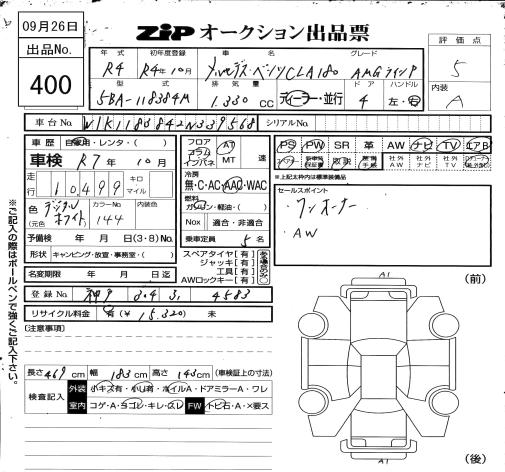 09月26日
出品No.
400
ZiP オークション出品票
年式 初年度登録 車名 グレード
R4 R4年10月 メルセデス・ベンツCLA180 AMGライン
型式 排気量 ドア ハンドル
5BA-118384M 1.330 CC ディーラー・並行 4 左・右
評価点
5
内装
A
車台No. W1K1183842N339568 シリアルNo.
車歴 自家用・レンタ・( )
車検 R7年10月
走行 10,499 キロ マイル
色(元色) デジタルホワイト カラーNo. 144 内装色
予備検 年 月 日(3・8)No.
形状 キャンピング・放宣・事務室・( )
名変期限 年 月 日迄
フロア コラム インパネ AT MT 速
冷房 無・C・AC・AAC・WAC
燃料 ガソリン・軽油・( )
Nox 適合・非適合
乗車定員 5名
スペアタイヤ[有]
ジャッキ[有]
工具[有]
AWロックキー[有]
PS PW SR 革 AW ナビ TV エアB
社外AW 社外ナビ 社外TV
※上記太枠内は標準装備品
セールスポイント
・ワンオーナー
・AW
登録No. 304 3. 4583
リサイクル料金 有(¥15.320) 未
(注意事項)
長さ469cm 幅183cm 高さ143cm (車検証上の寸法)
検査記入 外装 小キズ有・小凹有・ホイルA・ドアミラーA・ワレ
室内 コゲ・A・ヨゴレ・キレ・スレ FW トビ石・A・×要ス
※ご記入の際はボールペンで強くご記入下さい。
(前)
A1
A1
(後)